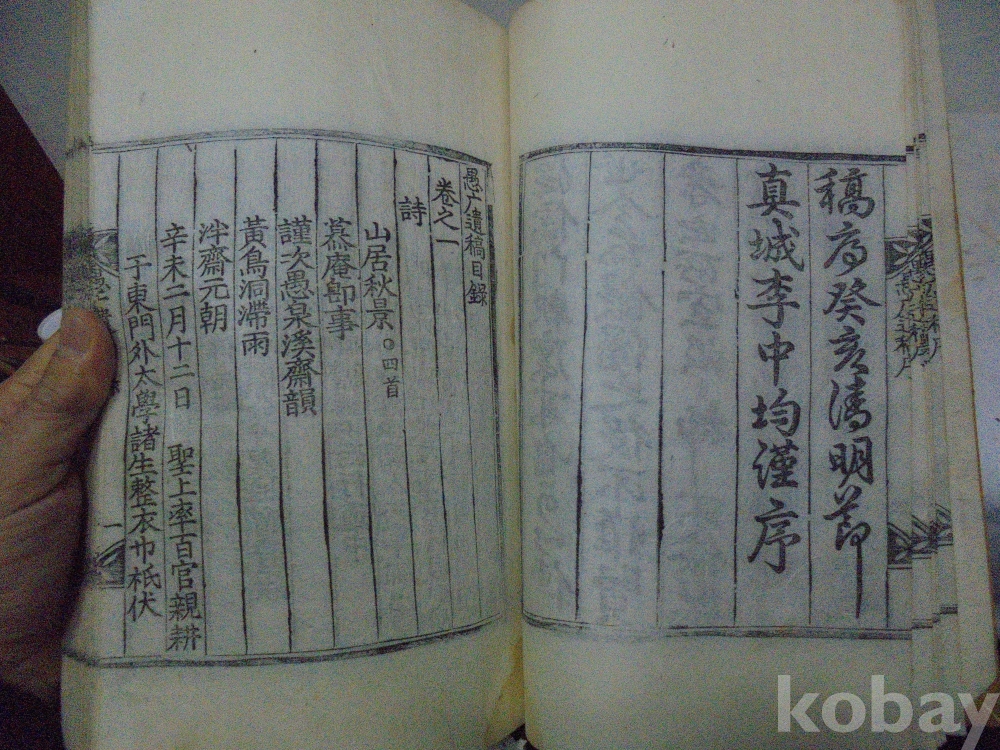 稿序癸亥清明節
真城李中均謹序
愚广遺稿目錄
卷之一
詩
山居秋景○四首
慕庵卽事
謹次愚泉溪齋韻
黃鳥洞滯雨
泮齋元朝
辛未二月十二日 聖上率百官親耕
于東門外太學諸生整衣巾祗伏
一
kobay